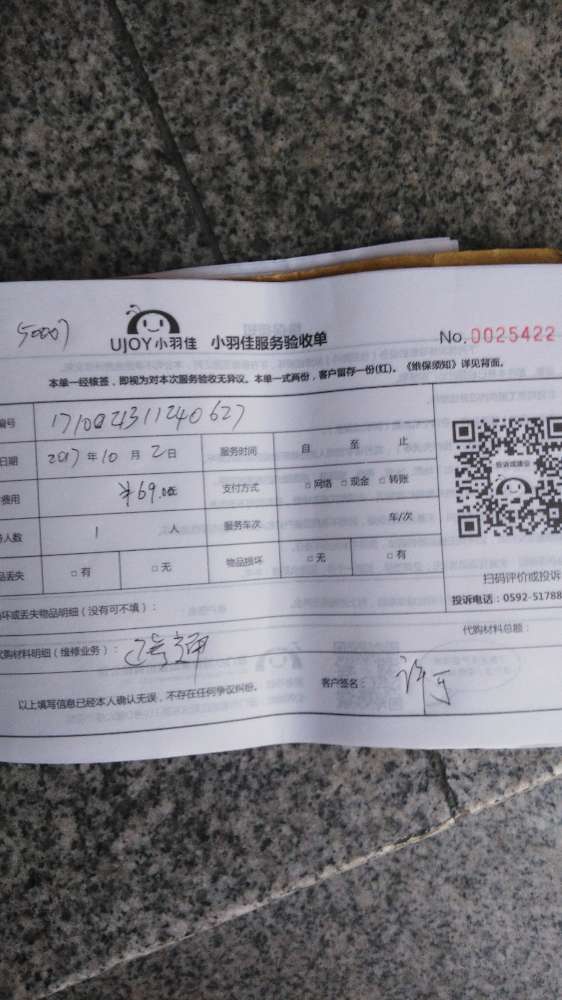 50007
UJOY小羽佳 小羽佳服务验收单 No.0025422
本单一经核签，即视为对本次服务验收无异议。本单一式两份，客户留存一份(红)。《维保须知》详见背面。
编号 1710024311240627
日期 2017年10月2日 服务时间 自 至 止
费用 ¥69.00 支付方式 □网络 □现金 □转账
人数 1 人 服务车次 车/次
品丢失 □有 □无 物品损坏 □无 □有
投诉或建议
扫码评价或投诉
投诉电话：0592-51788
坏或丢失物品明细（没有可不填）：
代购材料总额：
代购材料明细（维修业务）：
以上填写信息已经本人确认无误，不存在任何争议纠纷。 客户签名：